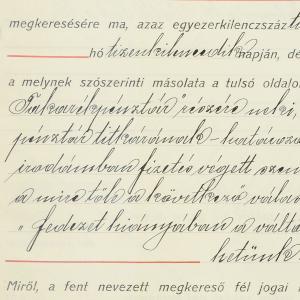 megkeresésére ma, azaz egyezerkilenczszáz
hó tizenkilencedik napján, dé
a melynek szószerinti másolata a tulsó oldalo
Takarékpénztár részére neki,
pénztár titkárának - határozo
irodámban fizetés végett szem
a mire tőle a következő válas
„fedezet hiányában a válto
hetünk.
Miről, a fent nevezett megkereső fél jogai